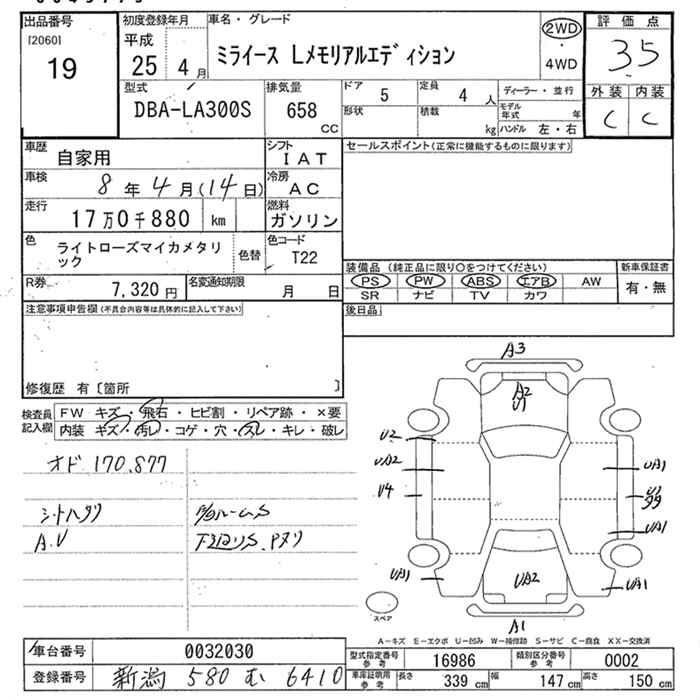 出品番号
[2060]
19
初度登録年月
平成
25 4月
車名・グレード
ミライース Lメモリアルエディション
2WD
・
4WD
評価点
3.5
外装 内装
C C
型式
DBA-LA300S
排気量
658
CC
ドア
5
定員
4人
形状
積載
kg
ディーラー・並行
モデル年式 年
ハンドル 左・右
車歴
自家用
シフト
IAT
車検
8年4月(14日)
冷房
AC
走行
17万0千880 km
燃料
ガソリン
色
ライトローズマイカメタリック
色替
色コード
T22
R券
7,320円
名変通知期限
月 日
セールスポイント(正常に機能するものに限ります)
装備品 (純正品に限り○をつけてください)
PS PW ABS エアB AW
SR ナビ TV カワ
新車保証書
有・無
後日品
注意事項申告欄(不具合内容等は具体的に記入して下さい)
修復歴 有〔箇所 〕
検査員記入欄
FW キズ・飛石・ヒビ割・リペア跡・×要
内装 キズ・汚レ・コゲ・穴・スレ・キレ・破レ
オド 170,877
シートハタリ
A.V
グローブルームS
下廻りS.Pヌリ
A3
A2
U1
U2
UA2
U4
UA1
UA1
UA1
UA2
UA1
A1
スペア
A-キズ E-エクボ U-凹み W-補修跡 S-サビ C-腐食 XX-交換済
車台番号
0032030
登録番号
新潟 580 む 6410
型式指定番号
参考
16986
類別区分番号
参考
0002
車庫証明用
参考
長さ 339 cm 幅 147 cm 高さ 150 cm